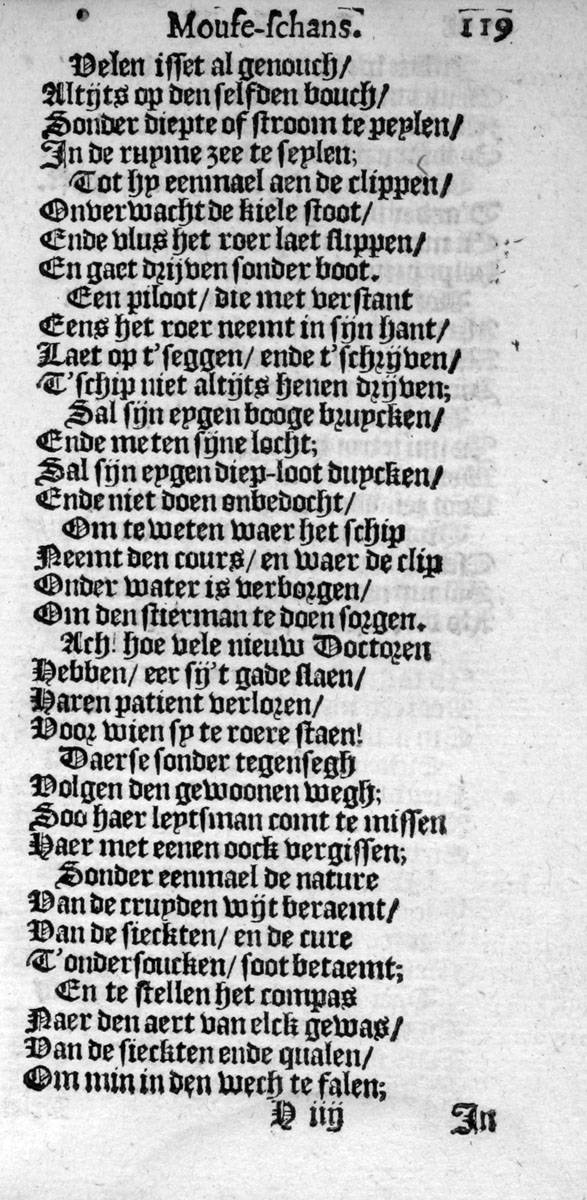 Mouse-schans. 119
Velen isset al genouch/
Altijts op den selfden bouch/
Sonder diepte of stroom te peylen/
In de ruyme zee te seylen;
Tot hy eenmael aen de clippen/
Onverwacht de kiele stoot/
Ende vlus het roer laet slippen/
En gaet drijven sonder boot.
Een piloot/ die met verstant
Eens het roer neemt in sijn hant/
Laet op t'seggen/ ende t'schrijven/
T'schip niet altijts henen drijven;
Sal sijn eygen booge bruycken/
Ende meten sijne locht;
Sal sijn eygen diep-loot duycken/
Ende niet doen onbedocht/
Om te weten waer het schip
Neemt den cours/ en waer de clip
Onder water is verborgen/
Om den stierman te doen sorgen.
Ach! hoe vele nieuw Doctoren
Hebben/ eer sy't gade slaen/
Haren patient verloren/
Voor wien sy te roere staen!
Daerse sonder tegensegh
Volgen den gewoonen wegh;
Soo haer leytsman comt te missen
Haer met eenen oock vergissen;
Sonder eenmael de nature
Van de cruyden wijt beraemt/
Van de sieckten/ en de cure
T'ondersoucken/ soot betaemt;
En te stellen het compas
Naer den aert van elck gewas/
Van de sieckten ende qualen/
Om min in den wech te falen;
H iiij In